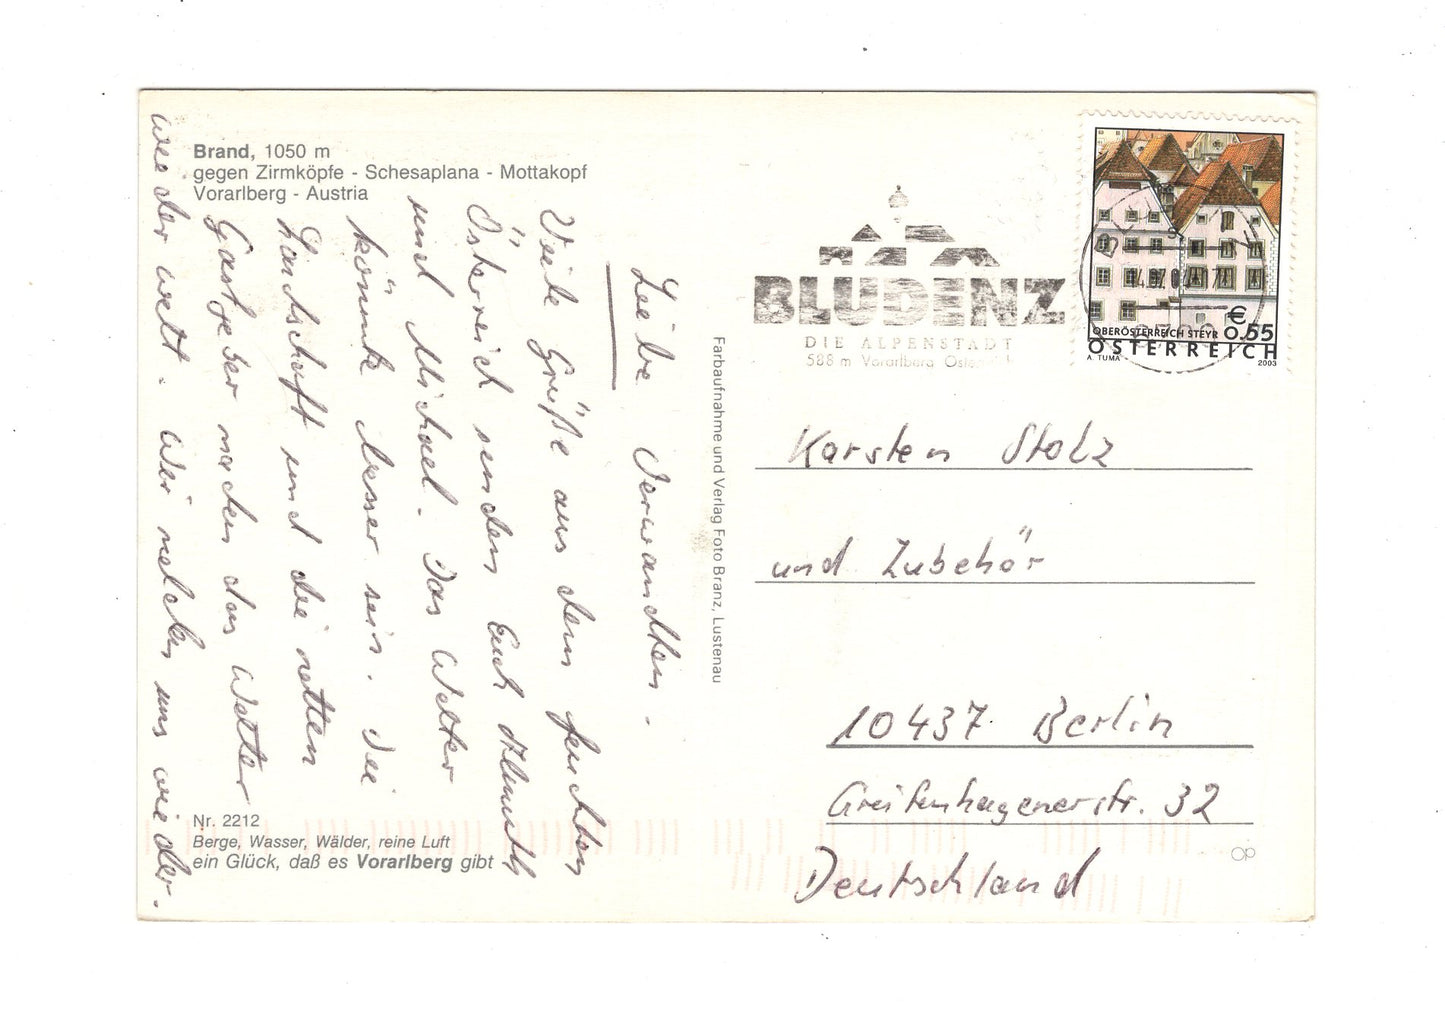 Brand, 1050 m
gegen Zirmköpfe - Schesaplana - Mottakopf
Vorarlberg - Austria
Liebe Verwandten.
Viele Grüße aus dem feuchten
Österreich senden Euch Helmuth
und Michael. Das Wetter
könnte besser sein. Die
Landschaft und die netten
Gastgeber machen das Wetter
wieder wett. Wir melden uns wieder.
Nr. 2212
Berge, Wasser, Wälder, reine Luft
ein Glück, daß es Vorarlberg gibt
Farbaufnahme und Verlag Foto Branz, Lustenau
BLUDENZ
DIE ALPENSTADT
588 m Vorarlberg Österreich
€
0.55
OBERÖSTERREICH STEYR
ÖSTERREICH
A. TUMA
2003
Karsten Stolz
und Zubehör
10437 Berlin
Greifenhagenerstr. 32
Deutschland